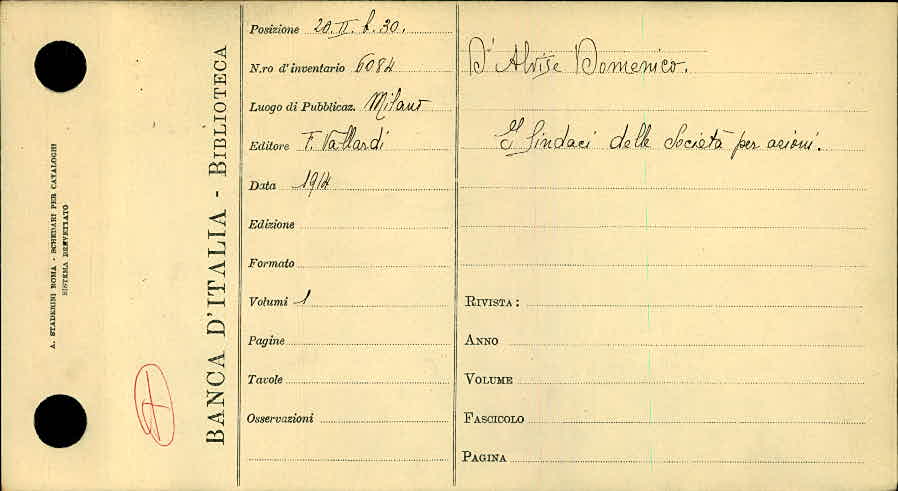 A. STADERINI ROMA - SCHEDARI PER CATALOGHI
SISTEMA BREVETTATO
BANCA D'ITALIA - BIBLIOTECA
Posizione 20.II.b.30.
N.ro d'inventario 6084
Luogo di Pubblicaz. Milano
Editore F. Vallardi
Data 1914
Edizione
Formato
Volumi 1
Pagine
Tavole
Osservazioni
D'Alvise Domenico.
I Sindaci delle Società per azioni.
RIVISTA:
ANNO
VOLUME
FASCICOLO
PAGINA